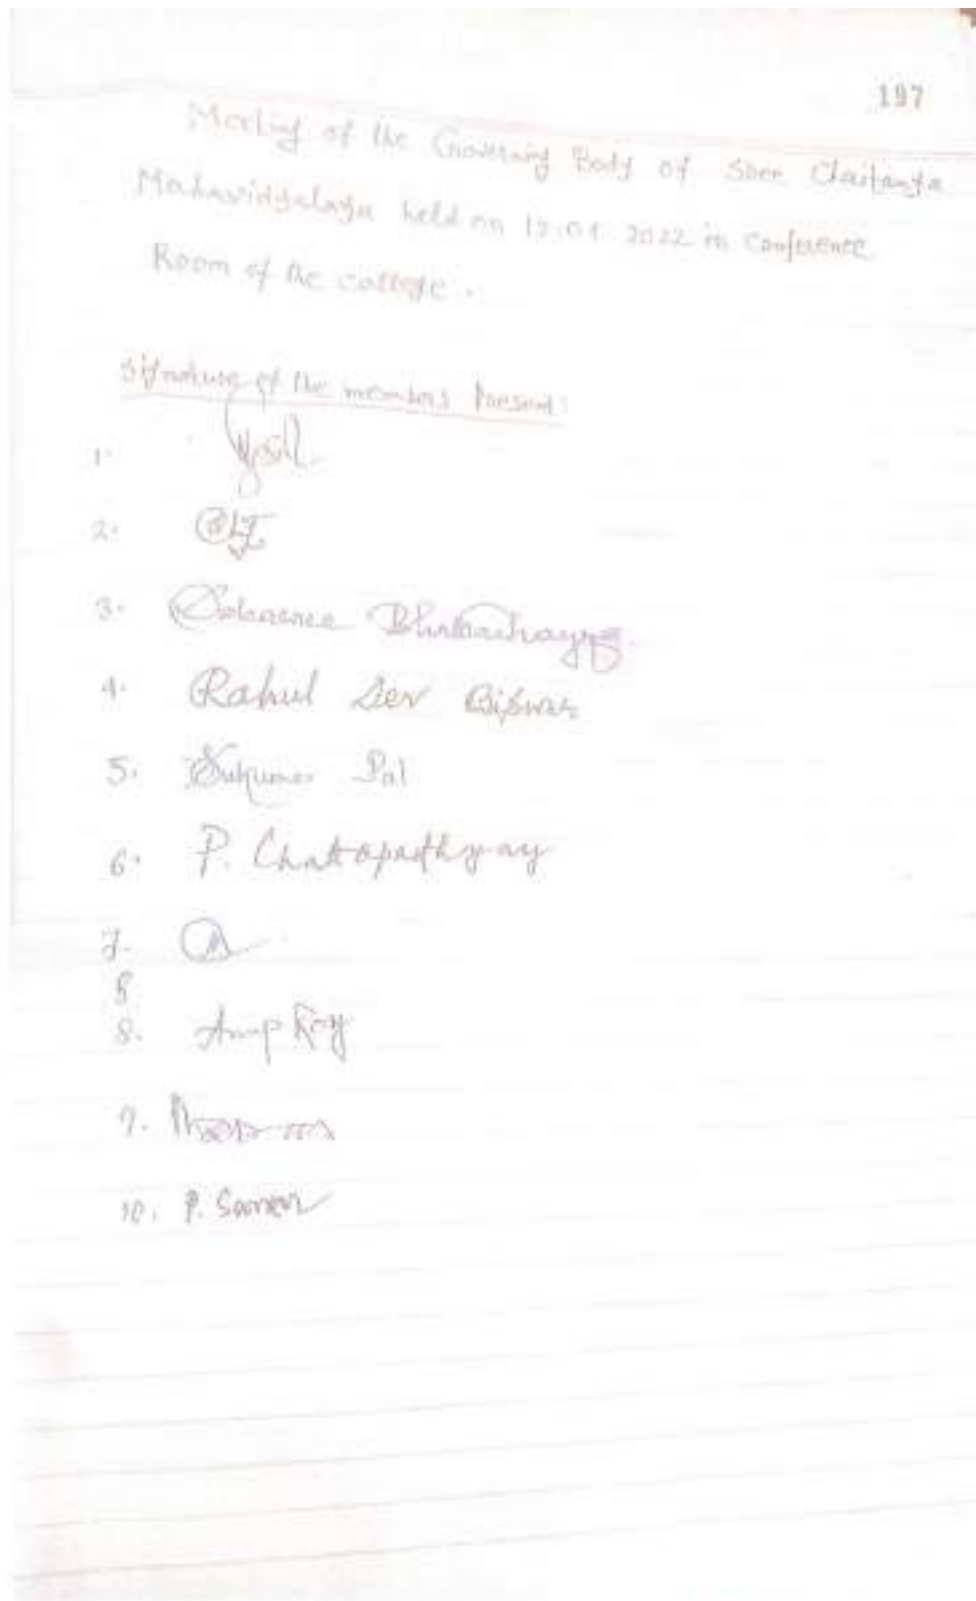 197
Meeting of the Governing Body of Shree Chaitanya
Mahavidyalaya held on 12.01.2022 in Conference
Room of the college.
Signature of the members Present:
1.
2.
3. Bhattacharyya
4. Rahul Dev Biswas
5. Sukumar Pal
6. P. Chattopadhyay
7.
8
8. Anup Roy
9.
10. P. Saren